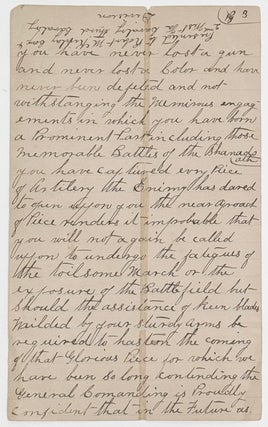 3
you have never lost a gun
and never lost a Color and have
never been defeted and not
withstanging the Neminous engag
ements in which you have born
a Prominent Part including those
memorable Battles of the Shanado
ath
you have captured evry Piece
of Artilery the Enimy has dared
to open upon you the near Aproach
of Piece renders it improbable that
you will not again be called
upon to undergo the fatigues of
the toilsome March or the
exposure of the Battlefield but
should the assistance of keen blades
Wailded by your Sturdy Arms be
required to hasten the coming
of that Glorious Piece for which we
have ben so long contending the
General Comanding is Proudly
Confident that in the Future as